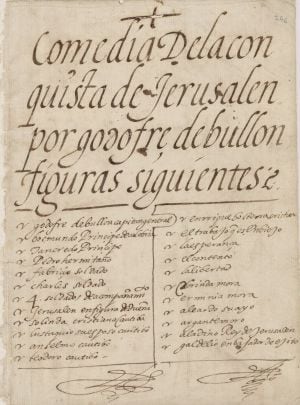 Comedia De la con
quista de Jerusalen
por godofre de bullon
figuras siguientes
godofre de bullon capitan general
boemundo Principe
tancredo Principe
Pedro hermitaño
fabricio soldado
charles soldado
4 soldados de acompañamito
Jerusalen en figura de dueña
solinda cristiana cautiva
lustaquio su esposo cautivo
anselmo cautivo
teodoro cautivo
el trabajo
la esperança
el contento
la libertad
clorinda mora
erminia mora
aleardo su ayo
argante moro
aladino Rey de Jerusalen
enbajador de ejito